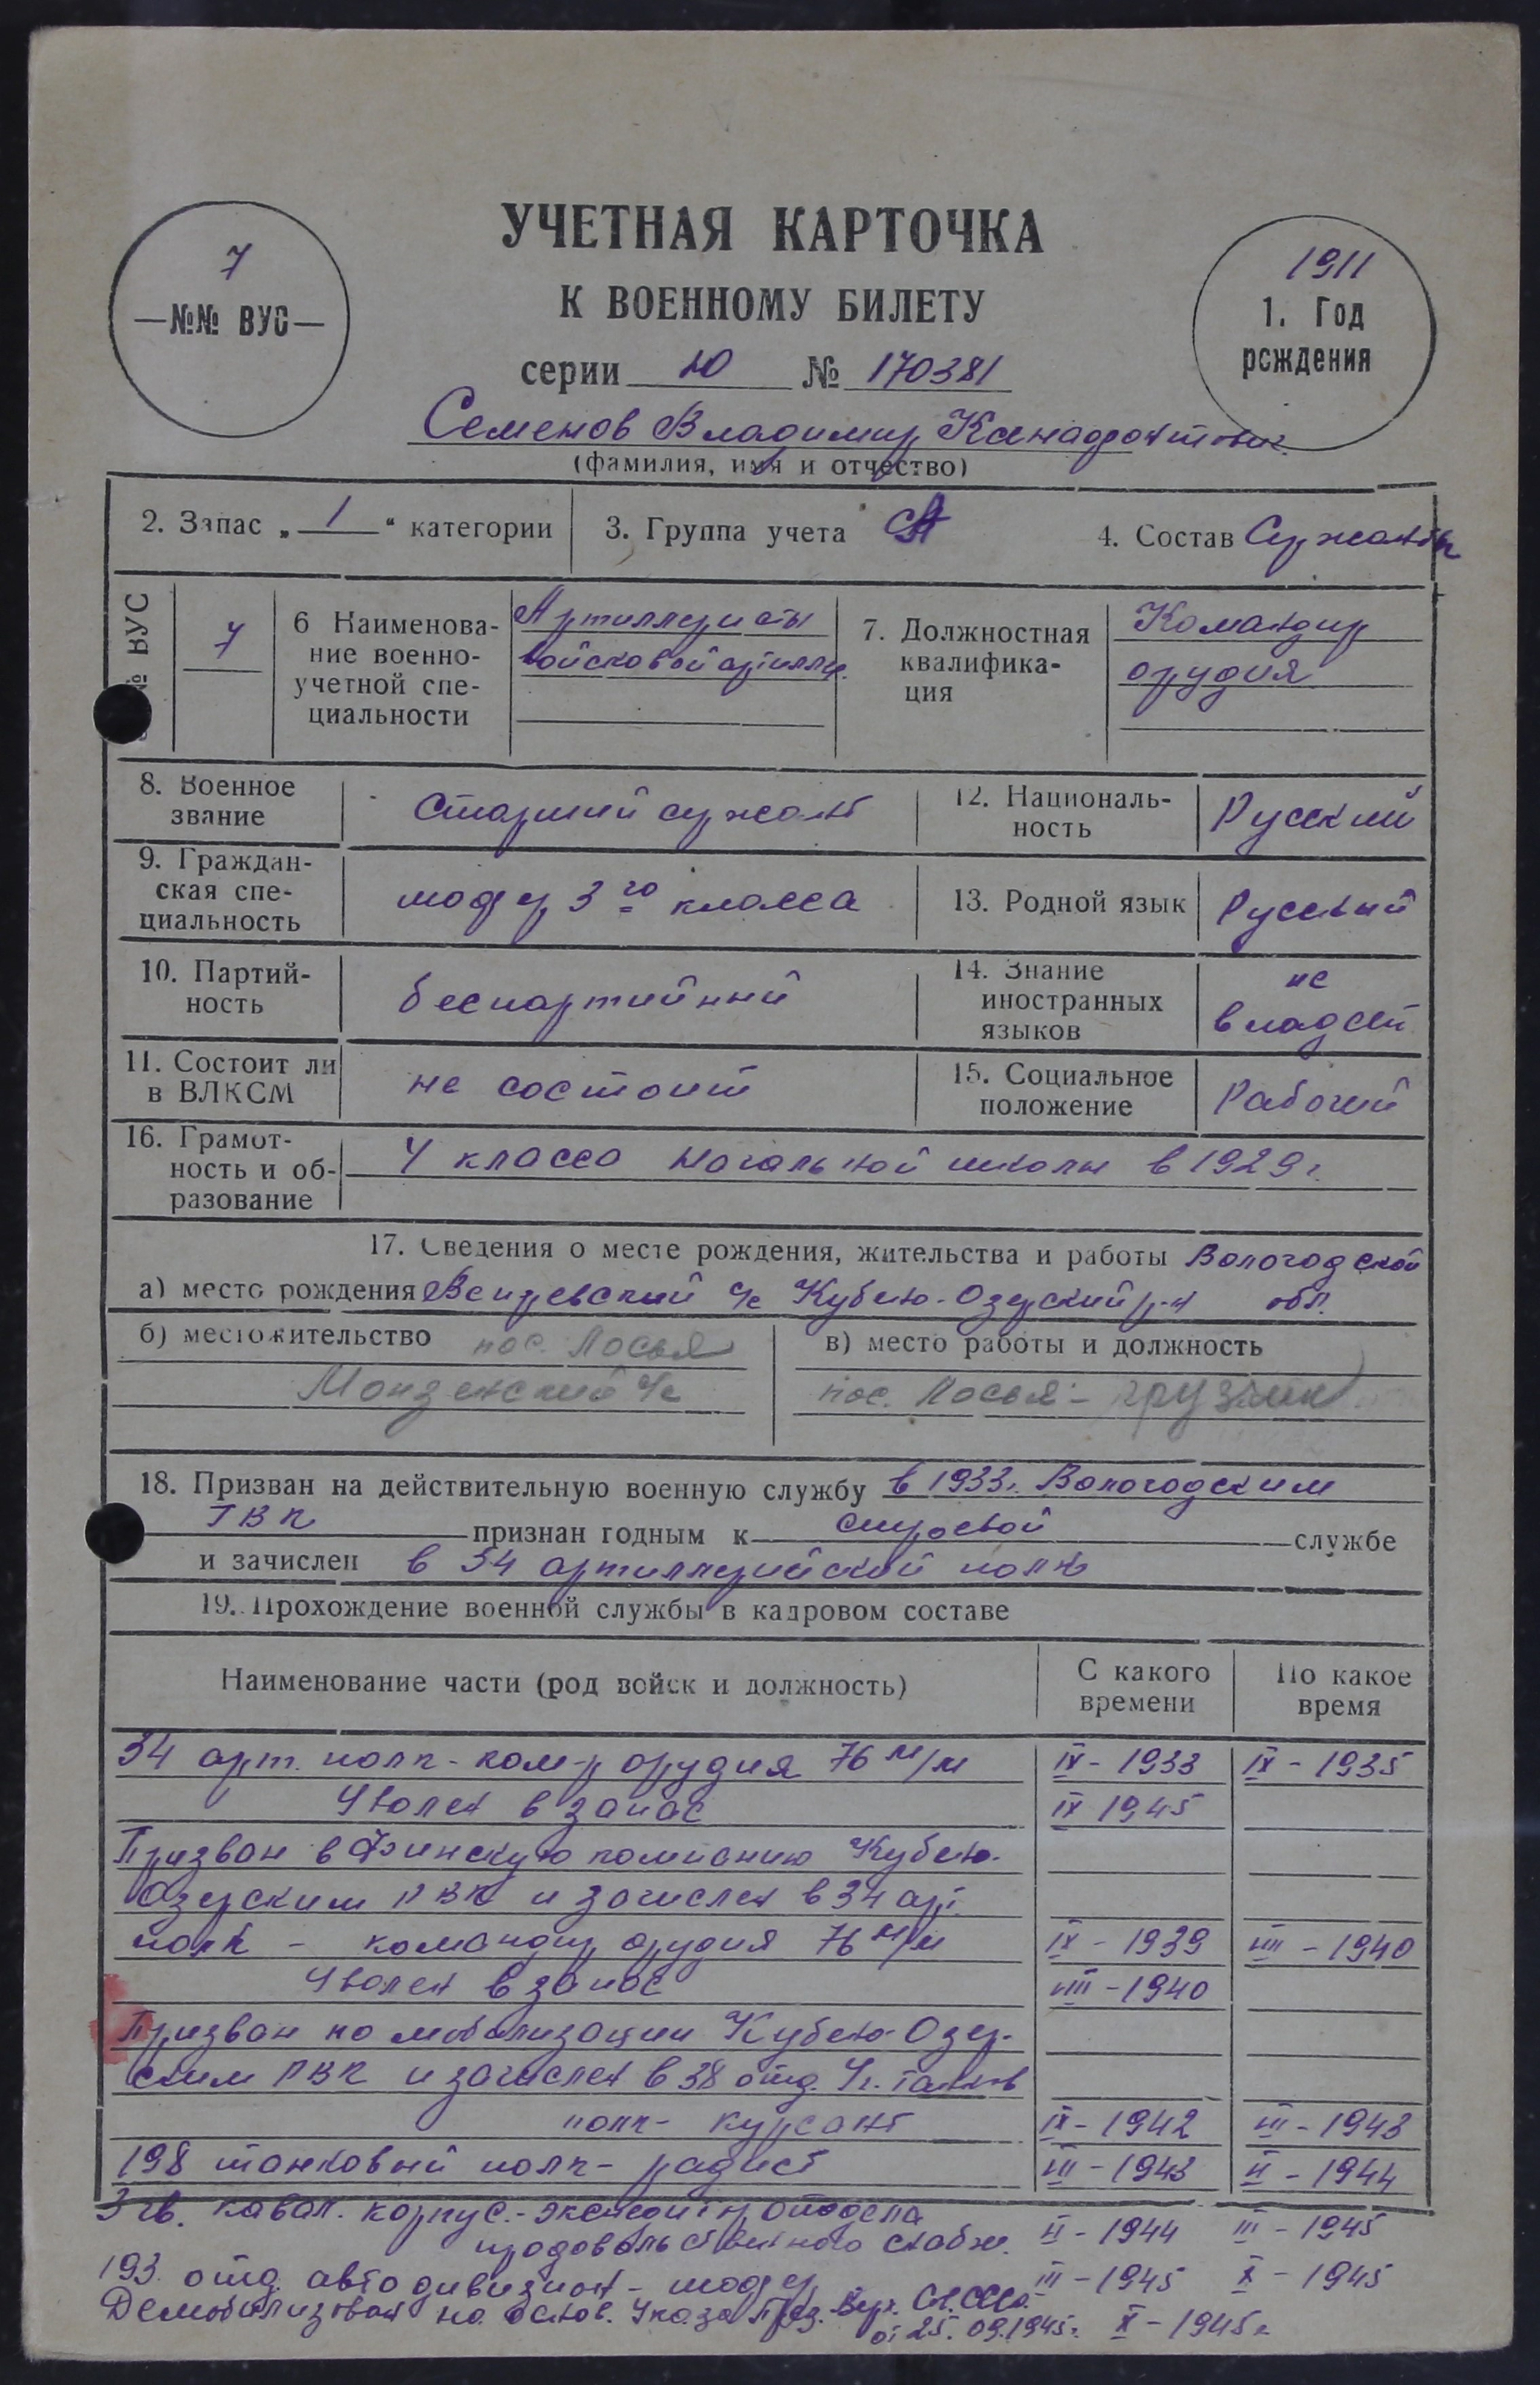 УЧЕТНАЯ КАРТОЧКА
К ВОЕННОМУ БИЛЕТУ
7
—№№ ВУС—
1911
1. Год
рождения
серии Ю № 170381
Семенов Владимир
(фамилия, имя и отчество)
2. Запас „ 1 “ категории
3. Группа учета СА
4. Состав Сержанты
№ ВУС
7
6 Наименова-
ние военно-
учетной спе-
циальности
Артиллеристы
войсковой артилл.
7. Должностная
квалифика-
ция
Командир
орудия
8. Военное
звание
Старший сержант
12. Националь-
ность
Русский
9. Граждан-
ская спе-
циальность
шофер 3го класса
13. Родной язык
Русский
10. Партий-
ность
беспартийный
14. Знание
иностранных
языков
не
владеет
11. Состоит ли
в ВЛКСМ
не состоит
15. Социальное
положение
Рабочий
16. Грамот-
ность и об-
разование
4 класса начальной школы в 1929 г.
17. Сведения о месте рождения, жительства и работы Вологодской
а) место рождения с/с Кубено-Озерский р-н обл.
б) местожительство пос. Лосья
Монзенский с/с
в) место работы и должность
пос. Лосья - грузчик
18. Призван на действительную военную службу в 1933г. Вологодским
ГВК признан годным к строевой службе
и зачислен в 34 артиллерийский полк
19. Прохождение военной службы в кадровом составе
Наименование части (род войск и должность)
С какого
времени
По какое
время
34 арт. полк - ком-р орудия 76 м/м IX - 1933 IX - 1935
Уволен в запас IX 1945
Призван в Финскую компанию Кубено-
Озерским РВК и зачислен в 34 арт.
полк - командир орудия 76 м/м IX - 1939 VIII - 1940
Уволен в запас VIII - 1940
Призван по мобилизации Кубено-Озер-
ским РВК и зачислен в 38 отд. Уч. танков
полк - курсант IX - 1942 III - 1943
198 танковый полк - радист III - 1943 II - 1944
3 гв. кавал. корпус. - экспедитор отдела
продовольственного снабж. II - 1944 III - 1945
193 отд. автодивизион - шофер III - 1945 X - 1945
Демобилизован на основ. Указа През. Верх. Сов. СССР
от 25.09.1945г. X - 1945г.